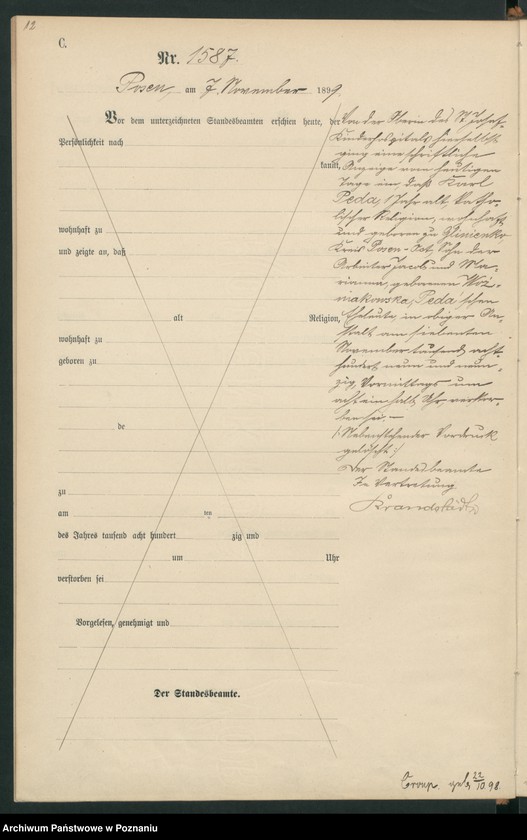 12
C.
Nr. 1587.
Posen, am 7. November 1899.
Vor dem unterzeichneten Standesbeamten erschien heute, der
Persönlichkeit nach
kannt,
wohnhaft zu
und zeigte an, daß
alt Religion,
wohnhaft zu
geboren zu
de
zu
am ten
des Jahres tausend acht hundert zig und
um Uhr
verstorben sei
Vorgelesen, genehmigt und
Der Standesbeamte.
Von der Oberin des St. Josef-
Kinderhospitals hierselbst
ging eine schriftliche
Anzeige vom heutigen
Tage ein, daß Karl
Peda, 1 Jahr alt, katho-
lischer Religion, wohnhaft
und geboren zu Glinienko
Kreis Posen-Ost, Sohn der
Arbeiter Jacob und Ma-
rianna, geborenen Woź-
niakowska, Peda'schen
Eheleute, in obiger An-
stalt am siebenten
November tausend acht-
hundert neun und neun-
zig, Vormittags um
acht ein halb Uhr verstor-
ben sei. —
/: Nebenstehender Vordruck
gelöscht :/
Der Standesbeamte
In Vertretung
Croup. geb. 22/10. 98.
Archiwum Państwowe w Poznaniu